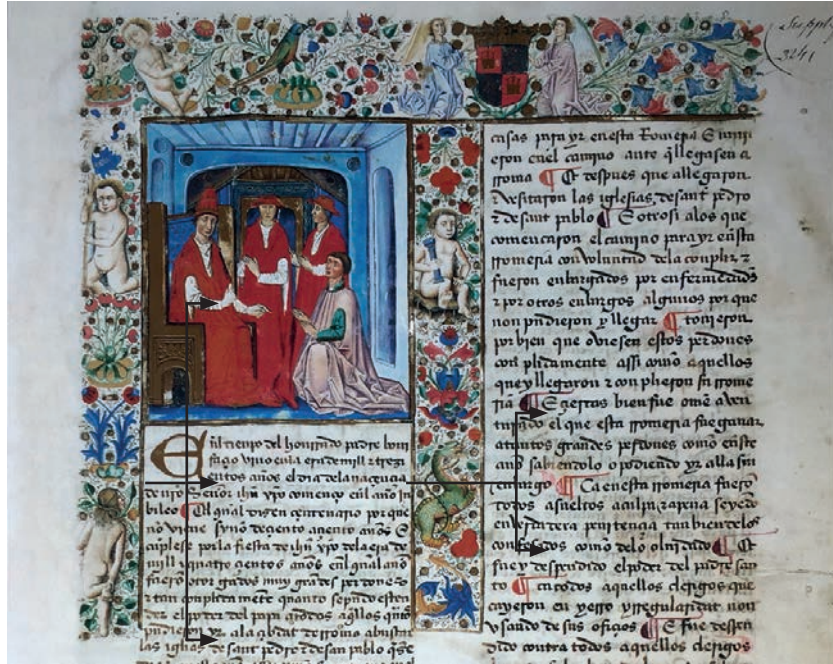 En l tienpo del honrrado padre boni
façio vino en la era de mill e trezi
entos años el dia de la naçençia
de nro Señor ihu xpo começo en l año ju
bileo ¶ El qual dizen çentenario por que
no viene syno de çiento a çiento años E
cunplese por la fiesta de ihu xpo de la era de
mill e quatro çentos años en l qual año
fuero otorgados muy grandes perdones
e tan conplida mete quanto se pudo esten
der el poder del papa a todos aqllos qntos
pudieron yr a la çibdat de rroma a buscar
las iglias de sant pedro e de sant pablo
Suppl
3241
casas para yr en esta Romeria E muri
eron en el camino ante q llegasen a
rroma ¶ Et despues que allegaron
e vesitaron las iglesias de sant pedro
e de sant pablo ¶ E otrosi a los que
començaron el camino para yr en esta
rromeria con voluntad de la conplir e
fueron enbargados por enfermedades
e por otros enbargos algunos por que
non pudieron y llegar ¶ touieron
por bien que oviesen estos perdones
conplidamente assi como aquellos
que y llegaron e conplieron su rrome
ria ¶ E çertas bien fue ome aven
turado el que esta rromeria fue ganar
a tantos grandes perdones como en este
año sabiendolo o podiendo yr alla sin
enbargo ¶ Ca en esta rromeria fuero
todos asueltos a culpa e a pena seyedo
en verdadera penitençia tan bien de los
confesados como de lo olvidado ¶ Et
fue y despendido el poder del padre san
to ¶ en todos aquellos clerigos que
cayeron en yerro y rregularidat non
vsando de sus ofiçios ¶ E fue despen
dido contra todos aquellos clerigos